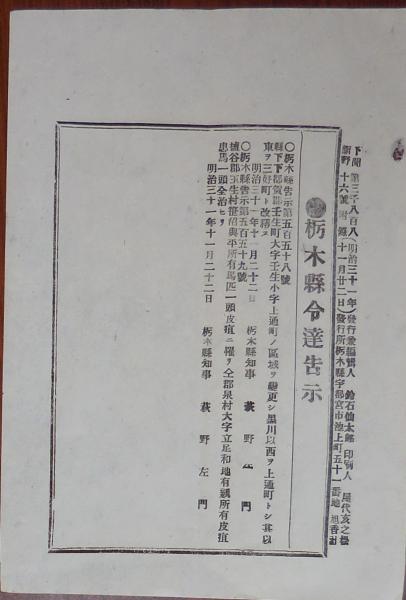 下野新聞 第三千八百八(明治三十一年)發行兼編輯人 鈴石仙太郎 印刷人 屋代亥之松
十六號附錄(十一月廿二日)發行所栃木縣宇都宮市池上町五十一番地 旭香社
栃木縣令達告示
〇栃木縣告示第五百五十八號
縣下下都賀郡壬生町大字壬生小字上通町ノ區域ヲ變更シ黑川以西ヲ上通町トシ其以
東ヲ三好町ト改稱ス
明治三十一年十一月二十二日 栃木縣知事 萩野左門
〇栃木縣告示第五百五十九號
塩谷郡玉生村 與平所有馬匹一頭皮疽ニ罹ヲ仝郡泉村大字立足和地有 所有皮疽
患馬一頭全治セリ
明治三十一年十一月二十二日 栃木縣知事 萩野左門